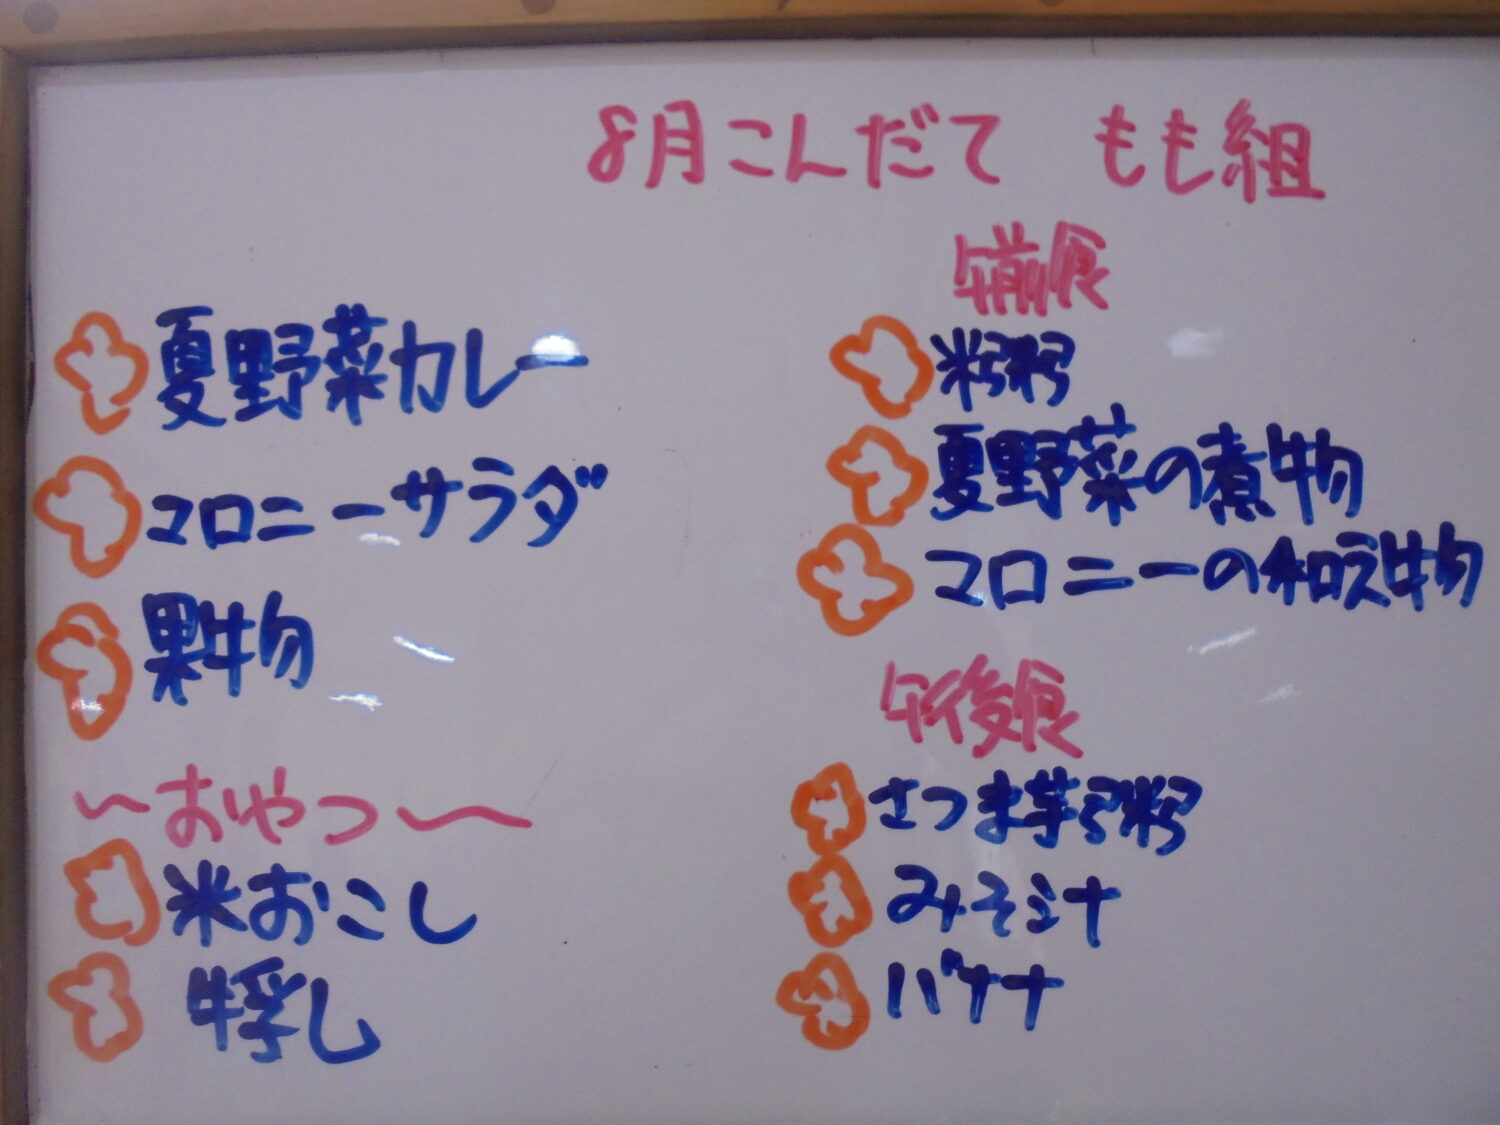 8月こんだて もも組
夏野菜カレー
マロニーサラダ
果物
～おやつ～
米おこし
牛乳
午前食
米粥
夏野菜の煮物
マロニーの和え物
午後食
さつま芋粥
みそ汁
バナナ